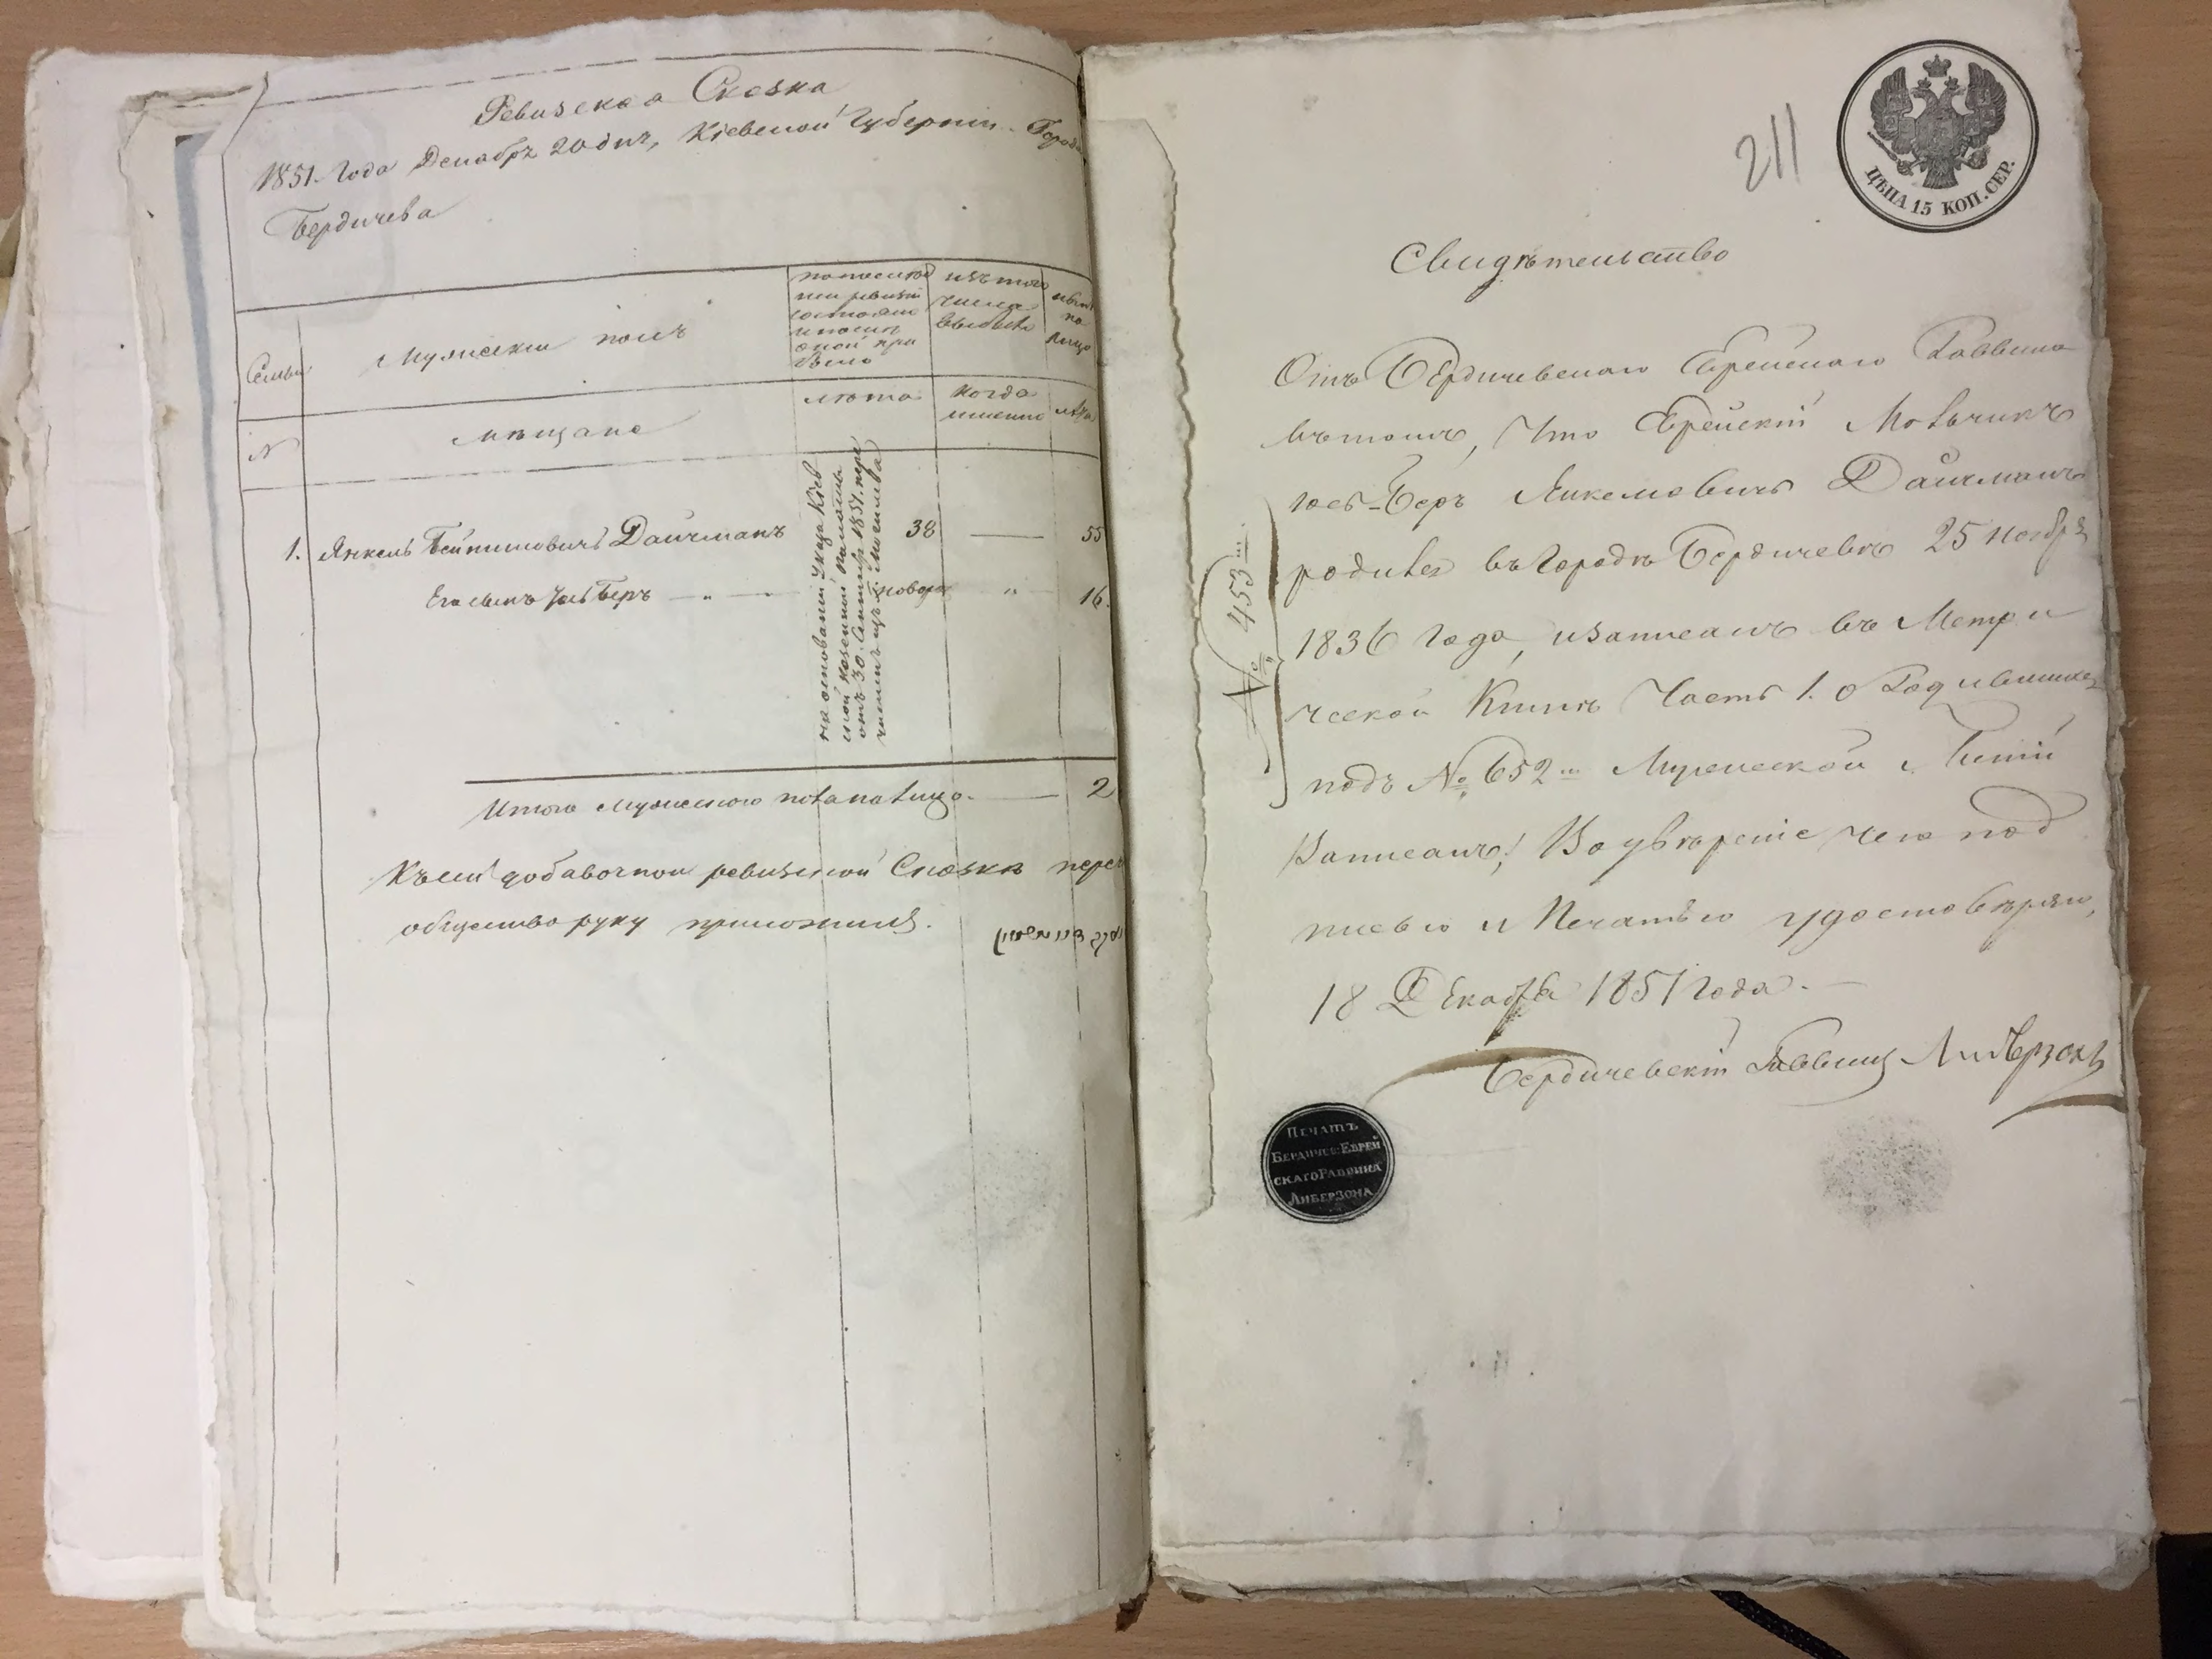 Ревизская Сказка
1851. Года Декабръ 20 днъ, Кіевской Губерніи Города
Бердичева
Семьи
Мужескій полъ
по последней ревизіи состояло и после оной прибыло
изъ того числа выбыло
ныне на лицо
№
мещане
лета
когда именно
лета
1. Янкель Дайчманъ
38
55
Его сынъ Iось Беръ
новорож
16.
на основаніи указа Кіев
ской казенной палаты
отъ 30. 1851. пере
численъ изъ Могилева
Итого мужескаго пола на лицо
2
Къ сей добавочной ревизской Сказки
общество руку приложилъ.
211
ЦѢНА 15 КОП. СЕР.
Свидѣтельство
Отъ Бердичевскаго Еврейскаго Раввина
въ томъ, Что Еврейскій Мальчикъ
Iось-Беръ Янкелевичъ Дайчманъ
родился въ Городѣ Бердичевѣ 25 Ноября
1836 года, и записанъ въ Метри
ческой Книгѣ Часть 1. о Родившихся
подъ № 652 Мужеской Линіи
Записанъ; Во увѣреніе чего под
писью и Печатью удостовѣряю,
18 Декабря 1851 Года.
Бердичевскій Раввинъ Либерзонъ
№ 453
ПЕЧАТЬ
БЕРДИЧЕВ: ЕВРЕЙ
СКАГО РАВВИНА
ЛИБЕРЗОНА